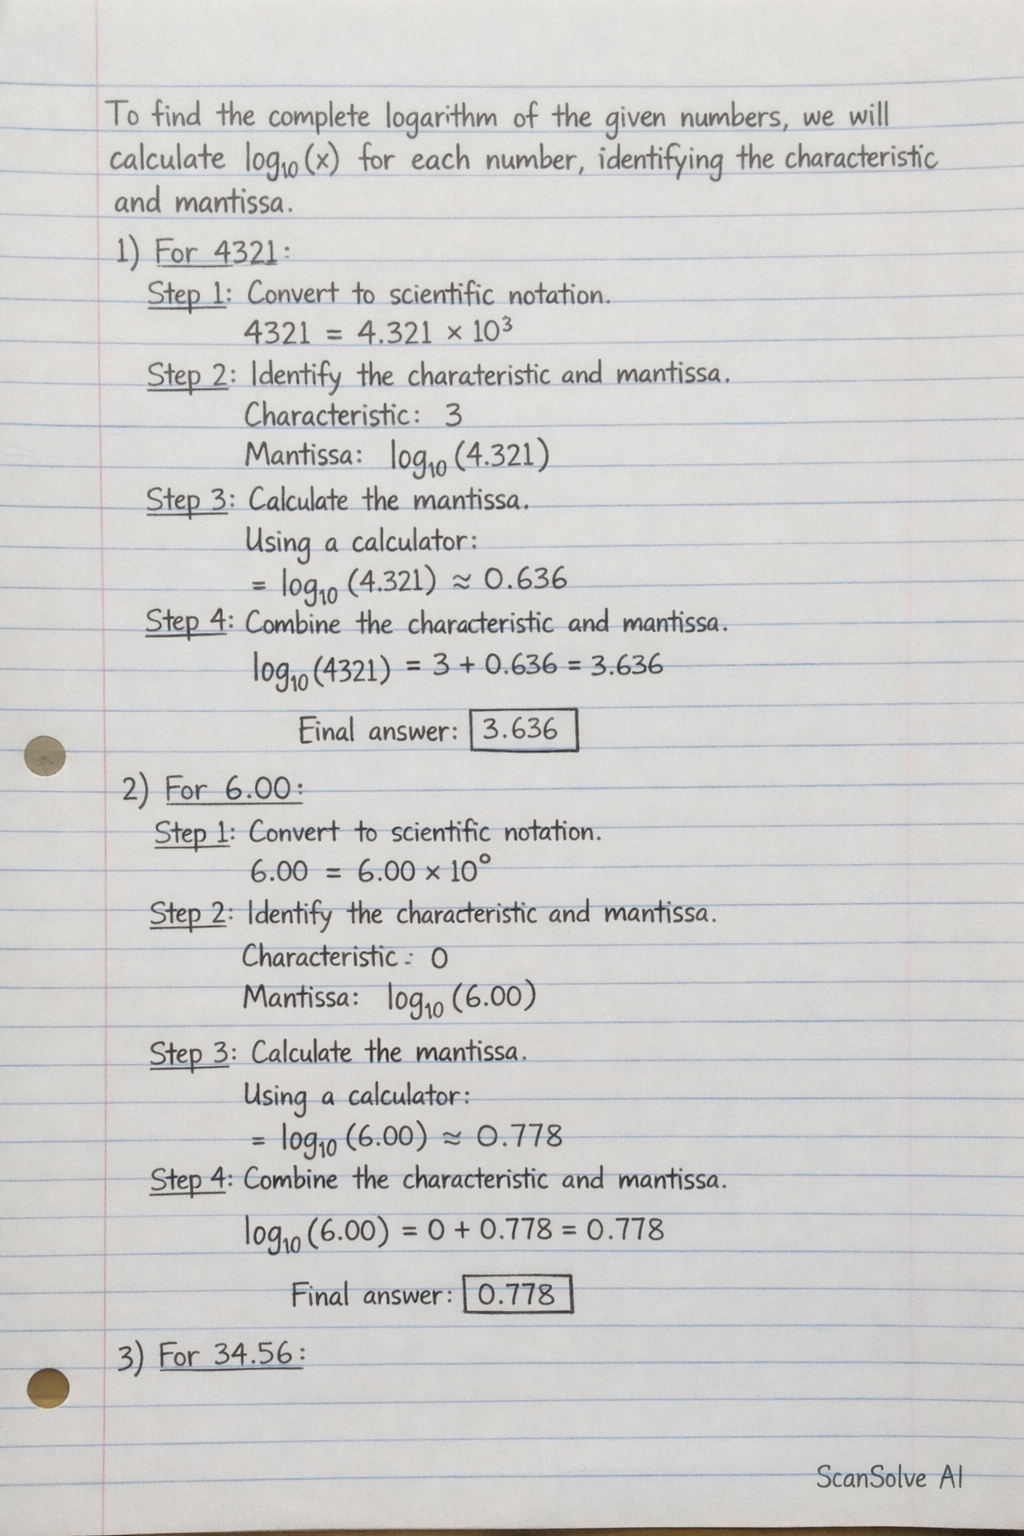 To find the complete logarithm of the given numbers, we will
calculate log₁₀(x) for each number, identifying the characteristic
and mantissa.
1) For 4321:
Step 1: Convert to scientific notation.
4321 = 4.321 × 10³
Step 2: Identify the charateristic and mantissa.
Characteristic: 3
Mantissa: log₁₀(4.321)
Step 3: Calculate the mantissa.
Using a calculator:
= log₁₀(4.321) ≈ 0.636
Step 4: Combine the characteristic and mantissa.
log₁₀(4321) = 3 + 0.636 = 3.636
Einal answer: 3.636
2) For 6.00:
Step 1: Convert to scientific notation.
6.00 = 6.00 × 10⁰
Step 2: Identify the characteristic and mantissa.
Characteristic: 0
Mantissa: log₁₀(6.00)
Step 3: Calculate the mantissa.
Using a calculator:
= log₁₀(6.00) ≈ 0.778
Step 4: Combine the characteristic and mantissa.
log₁₀(6.00) = 0 + 0.778 = 0.778
Final answer: 0.778
3) For 34.56:
ScanSolve AI